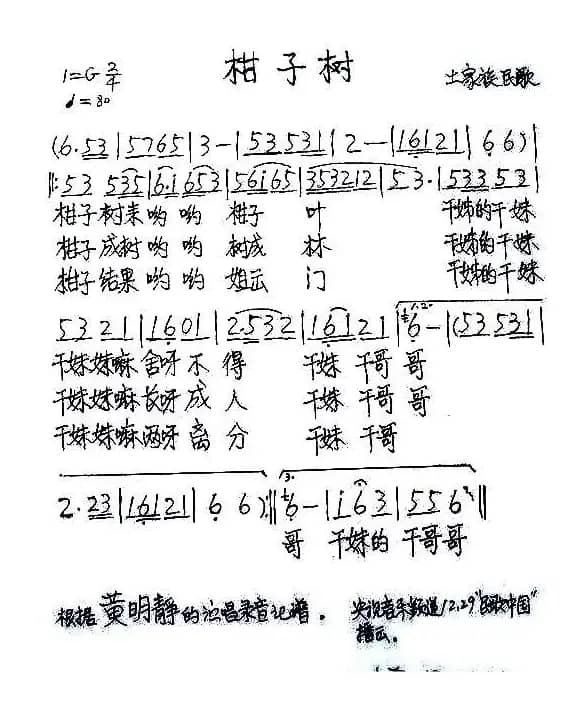 柑子树
1=G 2/4
♩=80
土家族民歌
(6.53|5765|3-|53531|2-|16121|66)|
‖:53 535|6.1653|56i65|353212|53.|53353|
柑子树来哟哟 柑子 叶 干妹的干妹
柑子成树哟哟 树成 林 干妹的干妹
柑子结果哟哟 姐云 门 干妹的干妹
5321|1601|2.532|16121|6-|(53531|
1.2.
干妹妹嘛舍呀不得 干妹干哥哥
干妹妹嘛长呀成人 干妹干哥哥
干妹妹嘛两呀离分 干妹干哥
2.23|16121|66):‖6-|i63|556‖
3.
哥 干妹的干哥哥
根据黄明静的演唱录音记谱. 央视音乐频道12.29"民歌中国"
播云.